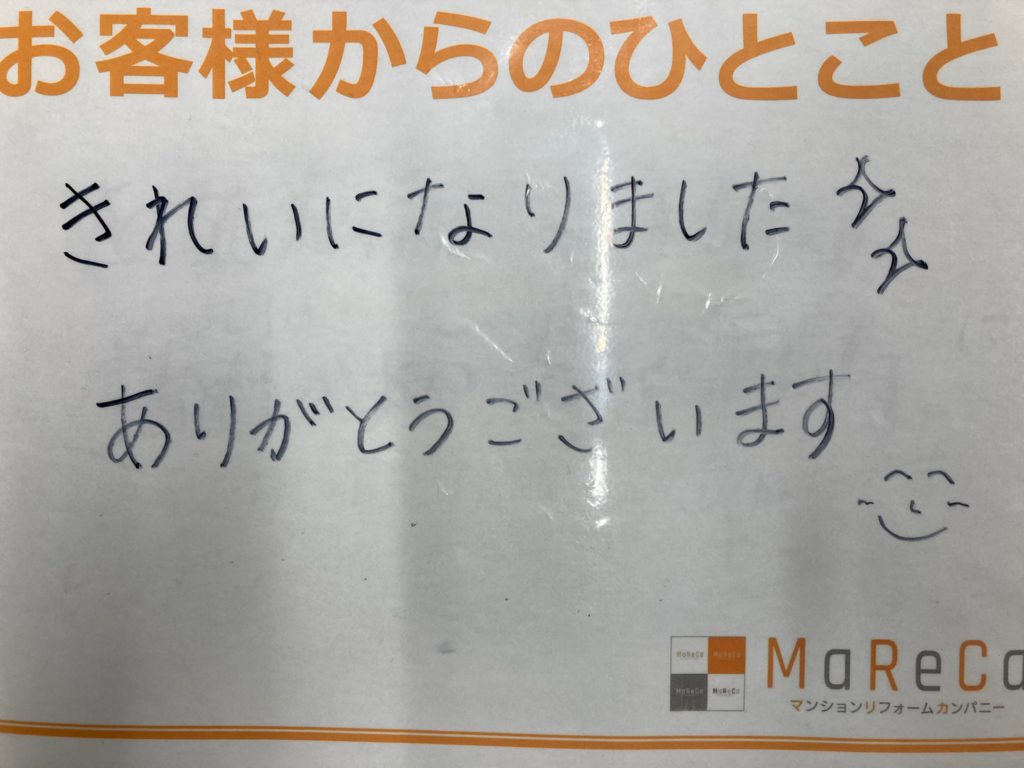 お客様からのひとこと
きれいになりました
ありがとうございます
MaReCa MaReCa
MaReCa MaReCa
MaReCa
マンションリフォームカンパニー